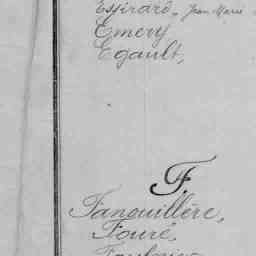 Essirard, Jean Marie
Emery
Egault,
F.
Fanouillère,
Fouré,